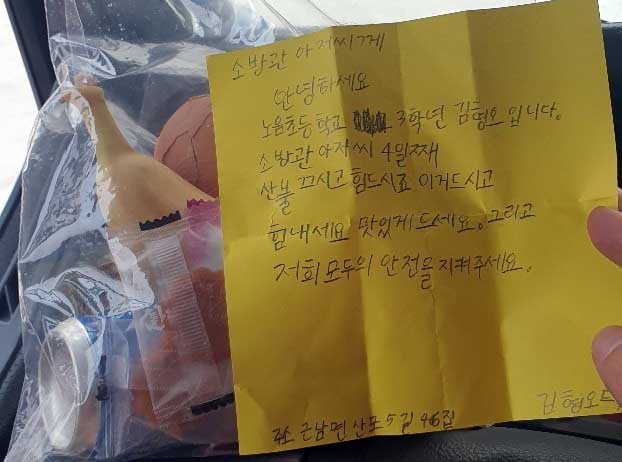 소방관 아저씨께
안녕하세요
노음초등학교 3학년 김형오입니다.
소방관 아저씨 4일째
산불 끄시고 힘드시죠 이거드시고
힘내세요 맛있게 드세요. 그리고
저희 모두의 안전을 지켜주세요.
김형오
주소 근남면 산포5길 46집